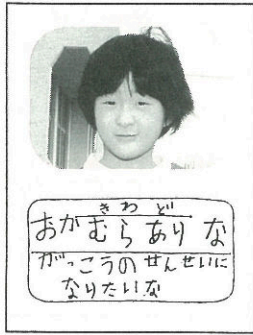 きわど
おかむらありな
がっこうのせんせいに
なりたいな